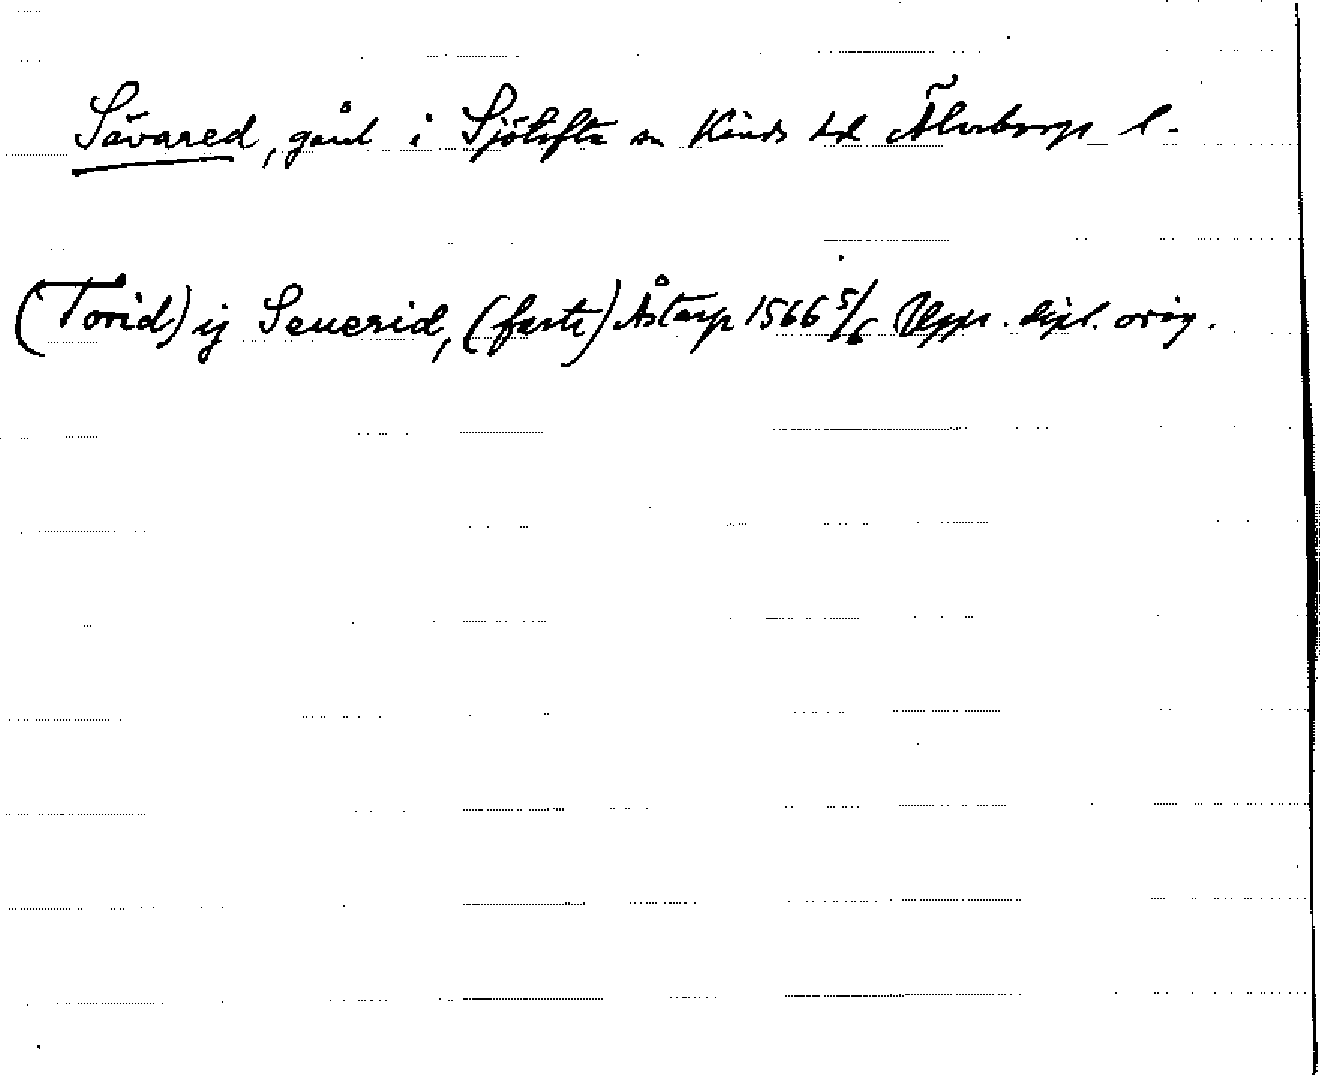 Sävared, gård i Sjötofta sn Kinds hd Älvsborgs l.
(Torid) ij Seuerid, (faste) Åstarp 1566 5/6 Upps. dipl. orig.